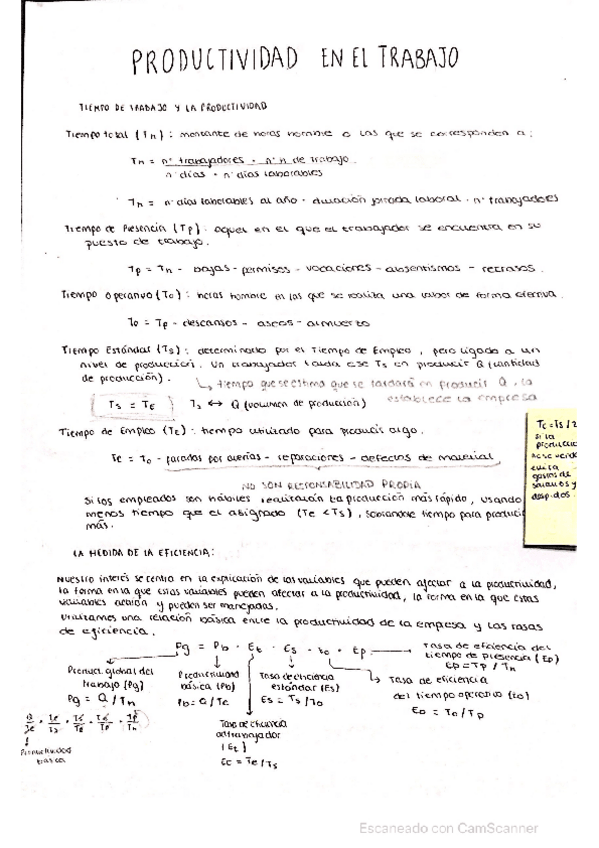 PRODUCTIVIDAD EN EL TRABAJO
TIEMPO DE TRABAJO Y LA PRODUCTIVIDAD
Tiempo total (Tn) : montante de horas hombre a las que se corresponden a :
Tn = nº trabajadores · nº h de trabajo
nº días · nº días laborables
Tn = nº días laborables al año · duración jornada laboral · nº trabajadores
Tiempo de Presencia (Tp) : aquel en el que el trabajador se encuentra en su
puesto de trabajo.
Tp = Tn - bajas - permisos - vacaciones - absentismos - retrasos.
Tiempo operativo (To) : horas hombre en las que se realiza una labor de forma efectiva.
To = Tp - descansos - aseos - almuerzo
Tiempo Estándar (Ts) : determinado por el Tiempo de Empleo, pero ligado a un
nivel de producción. Un trabajador tarda ese Ts en producir Q (cantidad
de producción).
tiempo que se estima que se tardará en producir Q, lo
establece la empresa
Ts = TE
Ts ↔ Q (volumen de producción)
Tiempo de Empleo (TE) : tiempo utilizado para producir algo.
Te = To - parados por averías - reparaciones - defectos de material
NO SON RESPONSABILIDAD PROPIA
Si los empleados son hábiles realizarán la producción más rápido, usando
menos tiempo que el asignado (Te < Ts), sobrándole tiempo para producir
más.
Te = Ts / 2
si la
producción
no se vende
evita
gastos de
salarios y
despidos.
LA MEDIDA DE LA EFICIENCIA :
Nuestro interés se centra en la explicación de las variables que pueden afectar a la productividad,
la forma en la que estas variables pueden afectar a la productividad, la forma en la que estas
variables actúan y pueden ser manejadas.
Utilizamos una relación básica entre la productividad de la empresa y las tasas
de eficiencia.
Pg = Pb · Et · Es · to · Ep
Tasa de eficiencia del
tiempo de presencia (Ep)
Ep = Tp / Tn
Product. global del
trabajo (Pg)
Pg = Q / Tn
Productividad
básica (Pb)
Pb = Q / Te
Tasa de eficiencia
estándar (Es)
Es = Ts / To
Tasa de eficiencia
del tiempo operativo (Eo)
Eo = To / Tp
Tasa de eficiencia
del trabajador
(Et)
Et = Te / Ts
Productividad
básica
Escaneado con CamScanner